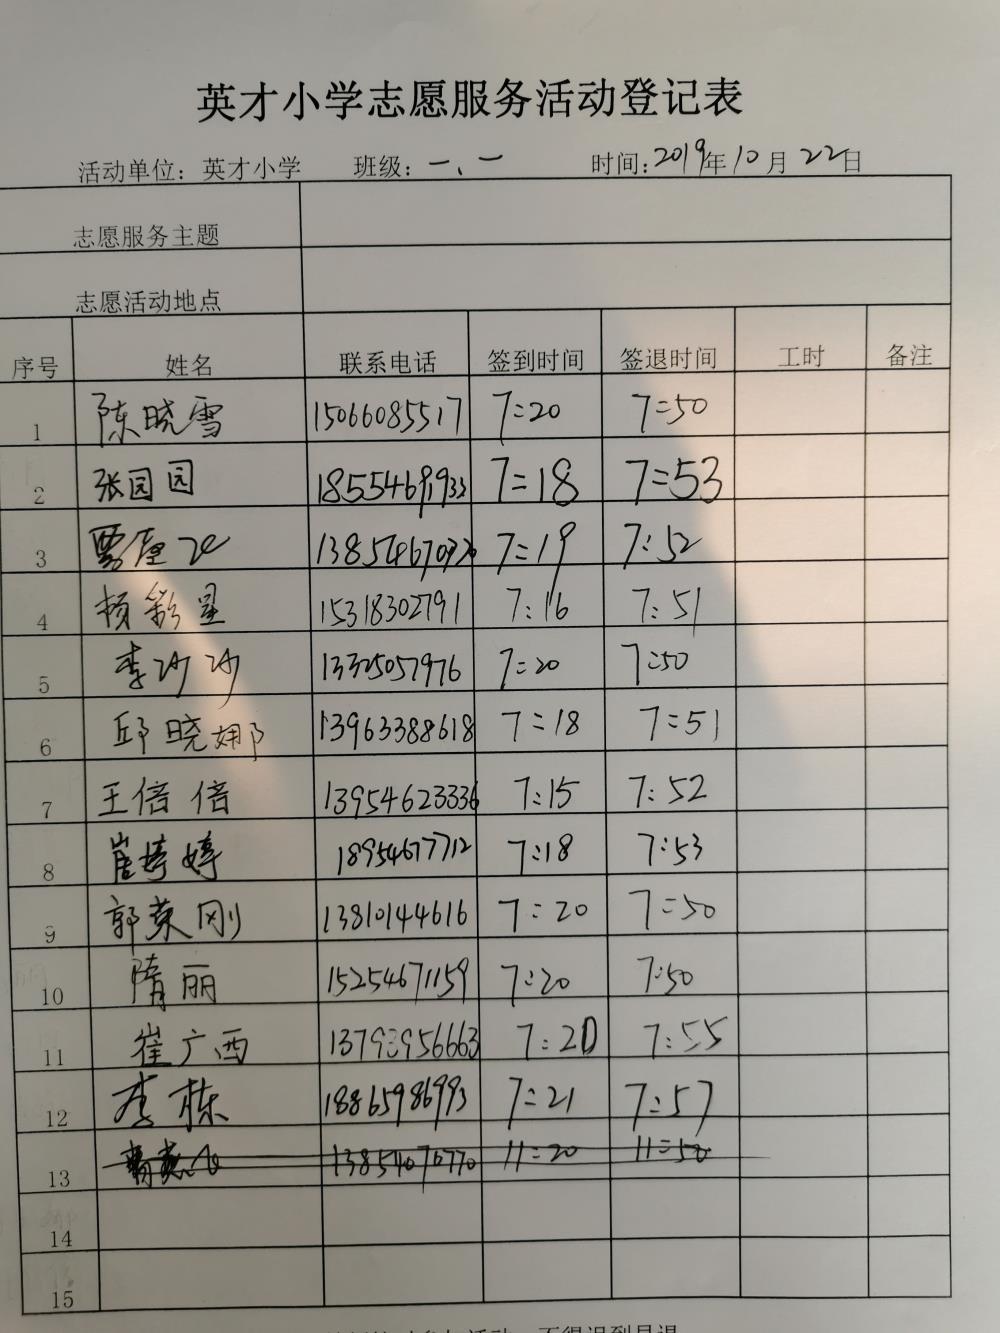 英才小学志愿服务活动登记表
活动单位：英才小学 班级：一、一 时间：2019年10月22日
志愿服务主题
志愿活动地点
序号 姓名 联系电话 签到时间 签退时间 工时 备注
1 陈晓雪 15066085517 7:20 7:50
2 张园园 18554691933 7:18 7:53
3 7:19 7:52
4 杨彩星 15318302791 7:16 7:51
5 李沙沙 13325057976 7:20 7:50
6 邱晓娜 13963388618 7:18 7:51
7 王倍倍 13954623336 7:15 7:52
8 崔婷婷 18954677712 7:18 7:53
9 郭荣刚 13810144616 7:20 7:50
10 隋丽 15254671159 7:20 7:50
11 崔广西 13793956663 7:20 7:55
12 李栋 18865986993 7:21 7:57
13 11:20 11:50
14
15